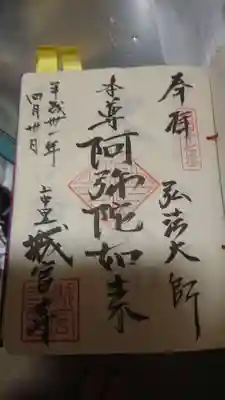 奉拝
弘法大師
本尊阿弥陀如来
上中里 城官寺
平成卅一年
四月廿日